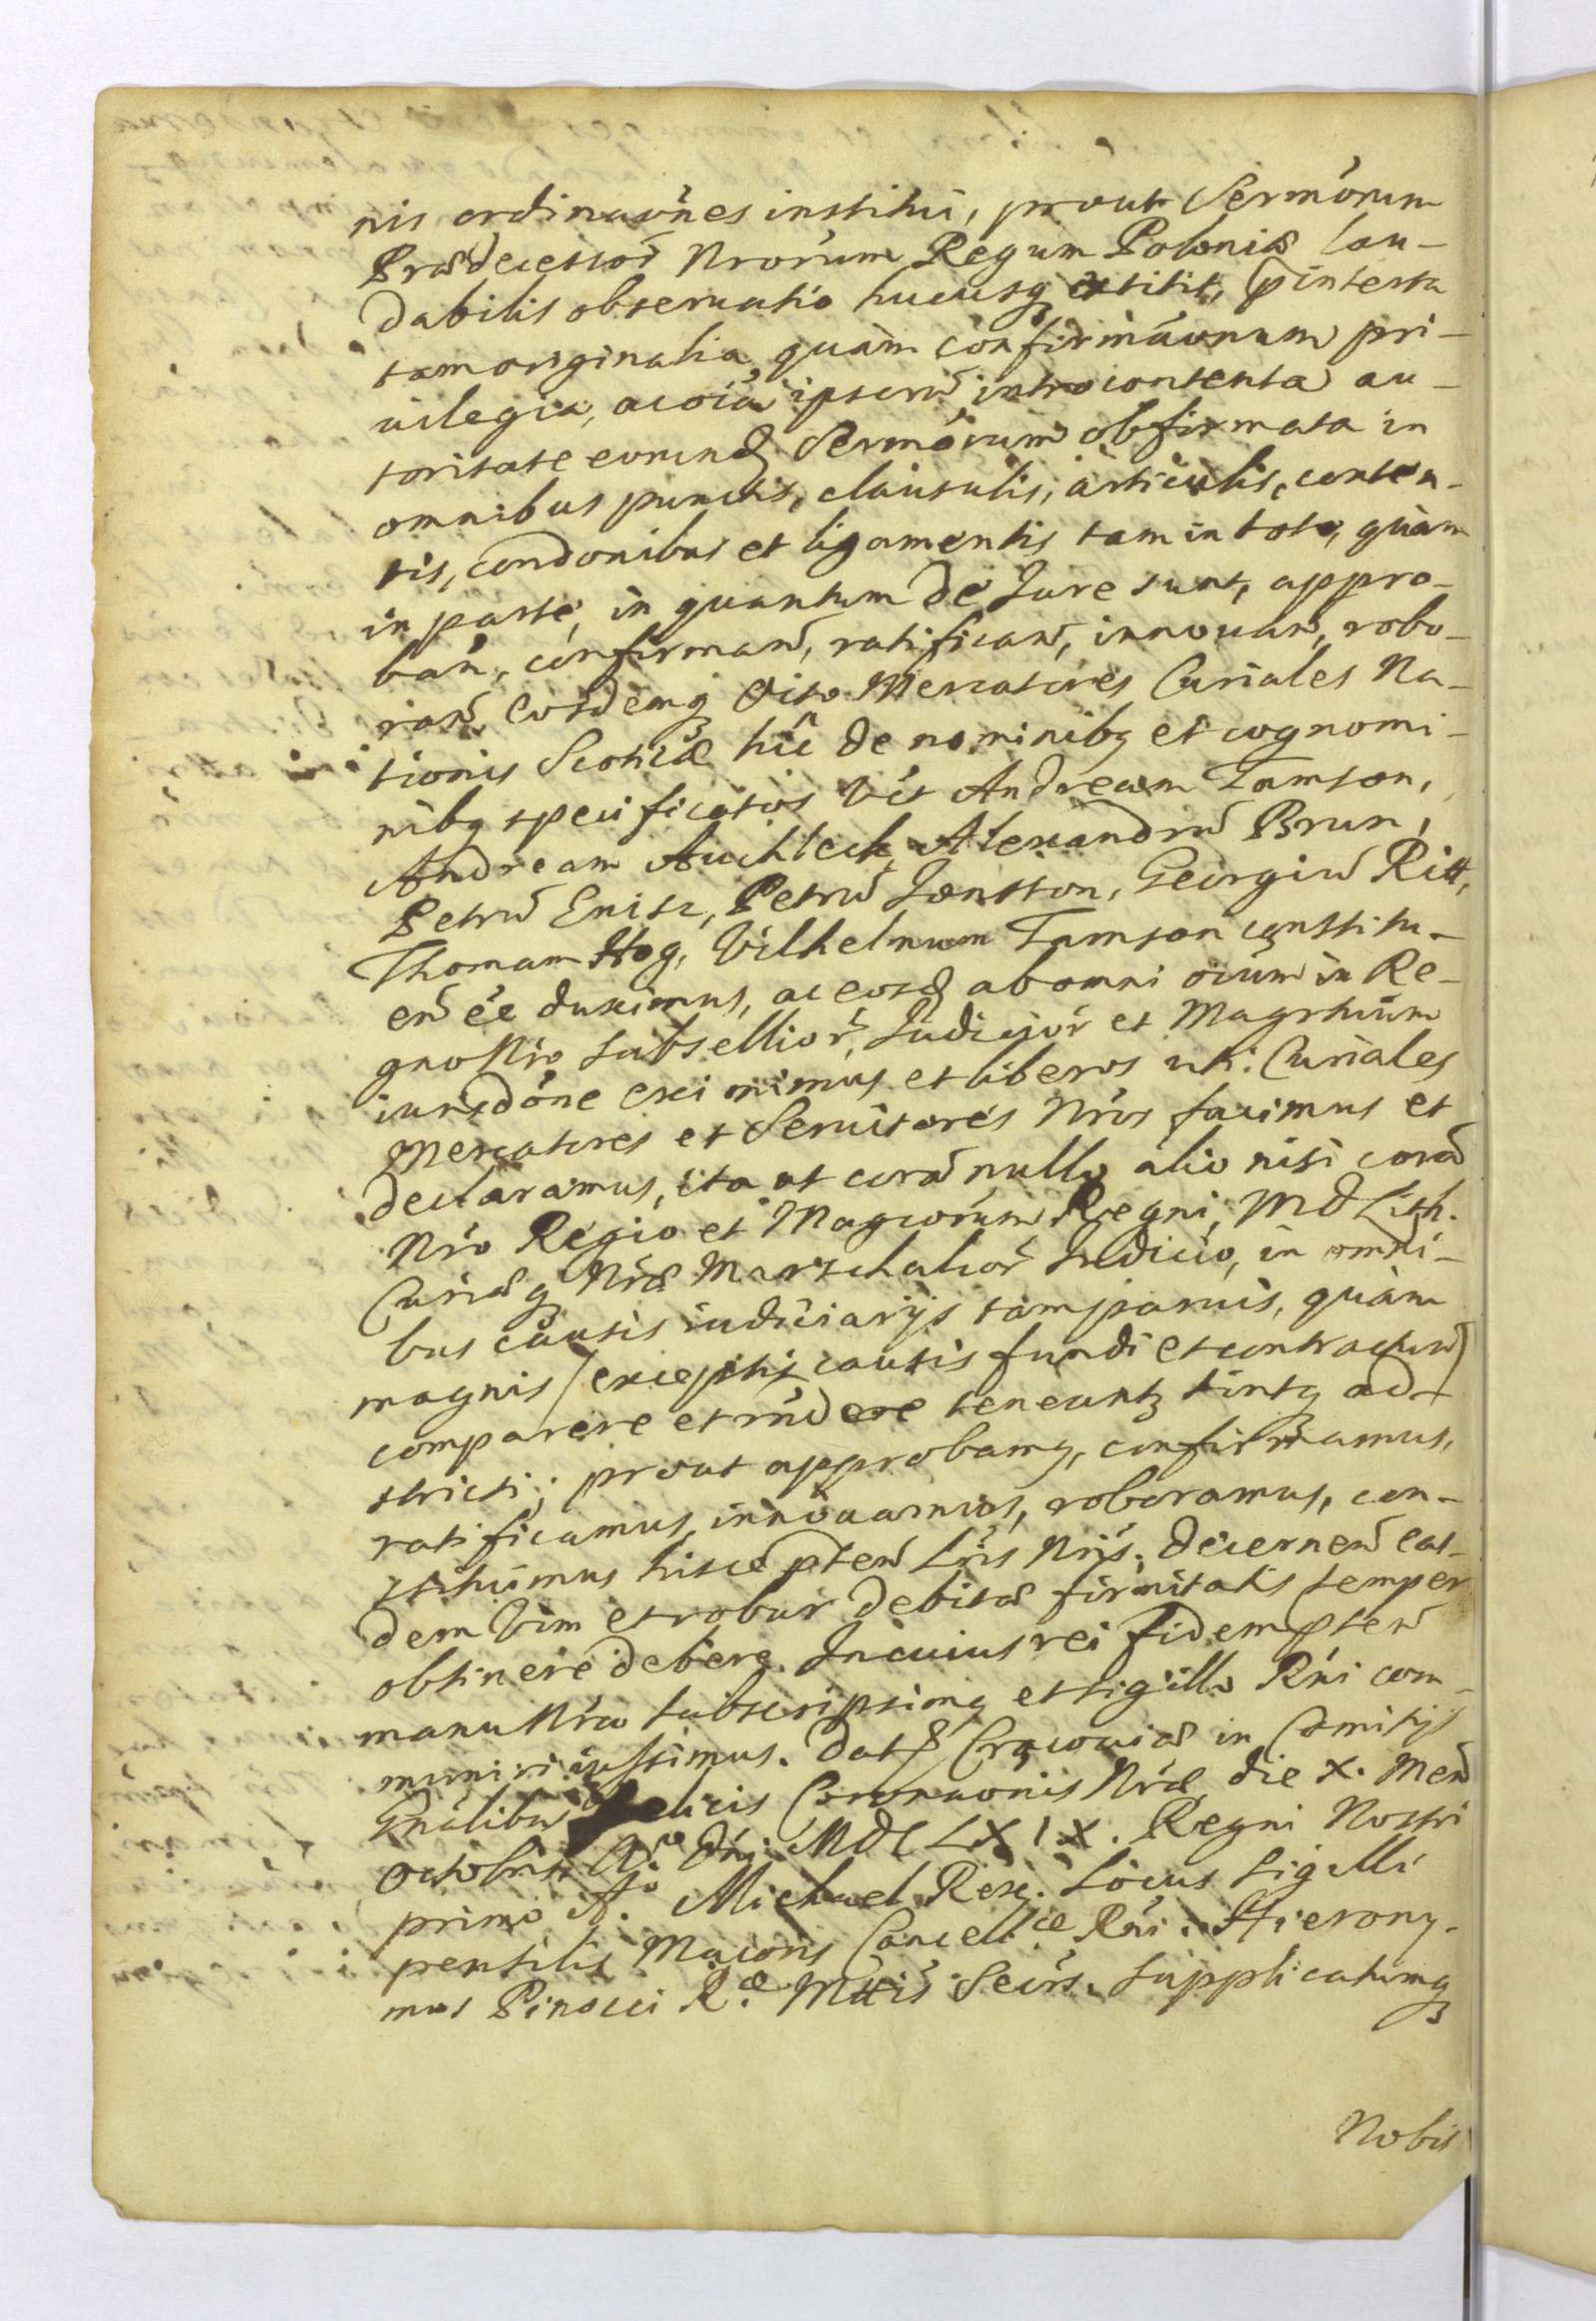 nis ordinaõnes institui, prout Sermórum
Prædecessor̃ Nrorum Regum Poloniæ lau-
dabilis obseruatio hucusq extitit, pinserta
tam originalia, quàm confirmaõnum pri-
uilegia, ac oia ipsorũ intro contenta au-
toritate eorund Sermórum obfirmata in
omnibus punctis, clausulis, articulis, conten-
tis, condonibus et ligamentis tam in toto, quàm
in parte, in quantum de Jure sunt, appro-
ban, confirmañ, ratificañ, innouañ, robo-
rañ. Eosdemq Octo Mercatores Curiales Na-
tionis Scoticæ hîc de nominibq et cognomi-
nibq specificatos Vct Andream Tamson,
Andream Auchleck, Alexandrũ Brun,
Petrũ Enisz, Petrũ Jonston, Georgiũ Ritt,
Thomam Hog, Vilhelmum Tamson constitu-
eñ ée duximus, ac eosd ab omni oium in Re-
gno Nro Subsellior̃, Judicior̃ et Magrtuum
iurisdóne eximimus et liberos uti Curiales
Mercatores et Seruitores Nros facimus et
declaramus, ita ut corã nullo alio nisi corã
Nro Regio et Magcorum Regni, M D Lith.
Curiæq Nræ Marschalcor̃ Judicio, in omni-
bus causis iudiciarijs tam paruis, quàm
magnis (exceptis causis fundi et contractuũ)
comparere et rñdere teneantq sintq ad-
stricti; prout approbamq, confirmamus,
ratificamus, innouamus, roboramus, con-
stituimus hisce pten Lris Nris. Decernen eas-
dem Vim et robur debitæ firmitatis semper
obtinere debere. In cuius rei fidem pten
manu Nra subscripsimq et sigillo Rni com-
muniri iussimus. Dat Cracouiæ in Comitijs
Gnalibus felicis Coronaonis Nræ die X. Men
Octobris Ao Dni MDCLXIX. Regni Nostri
primo Ao. Michael Rex. Locus Sigilli
pensilis Maioris Cancellæ Rni. Hierony-
mus Pinocci R.æ Mttis Secrs. Supplicatumq
Nobis